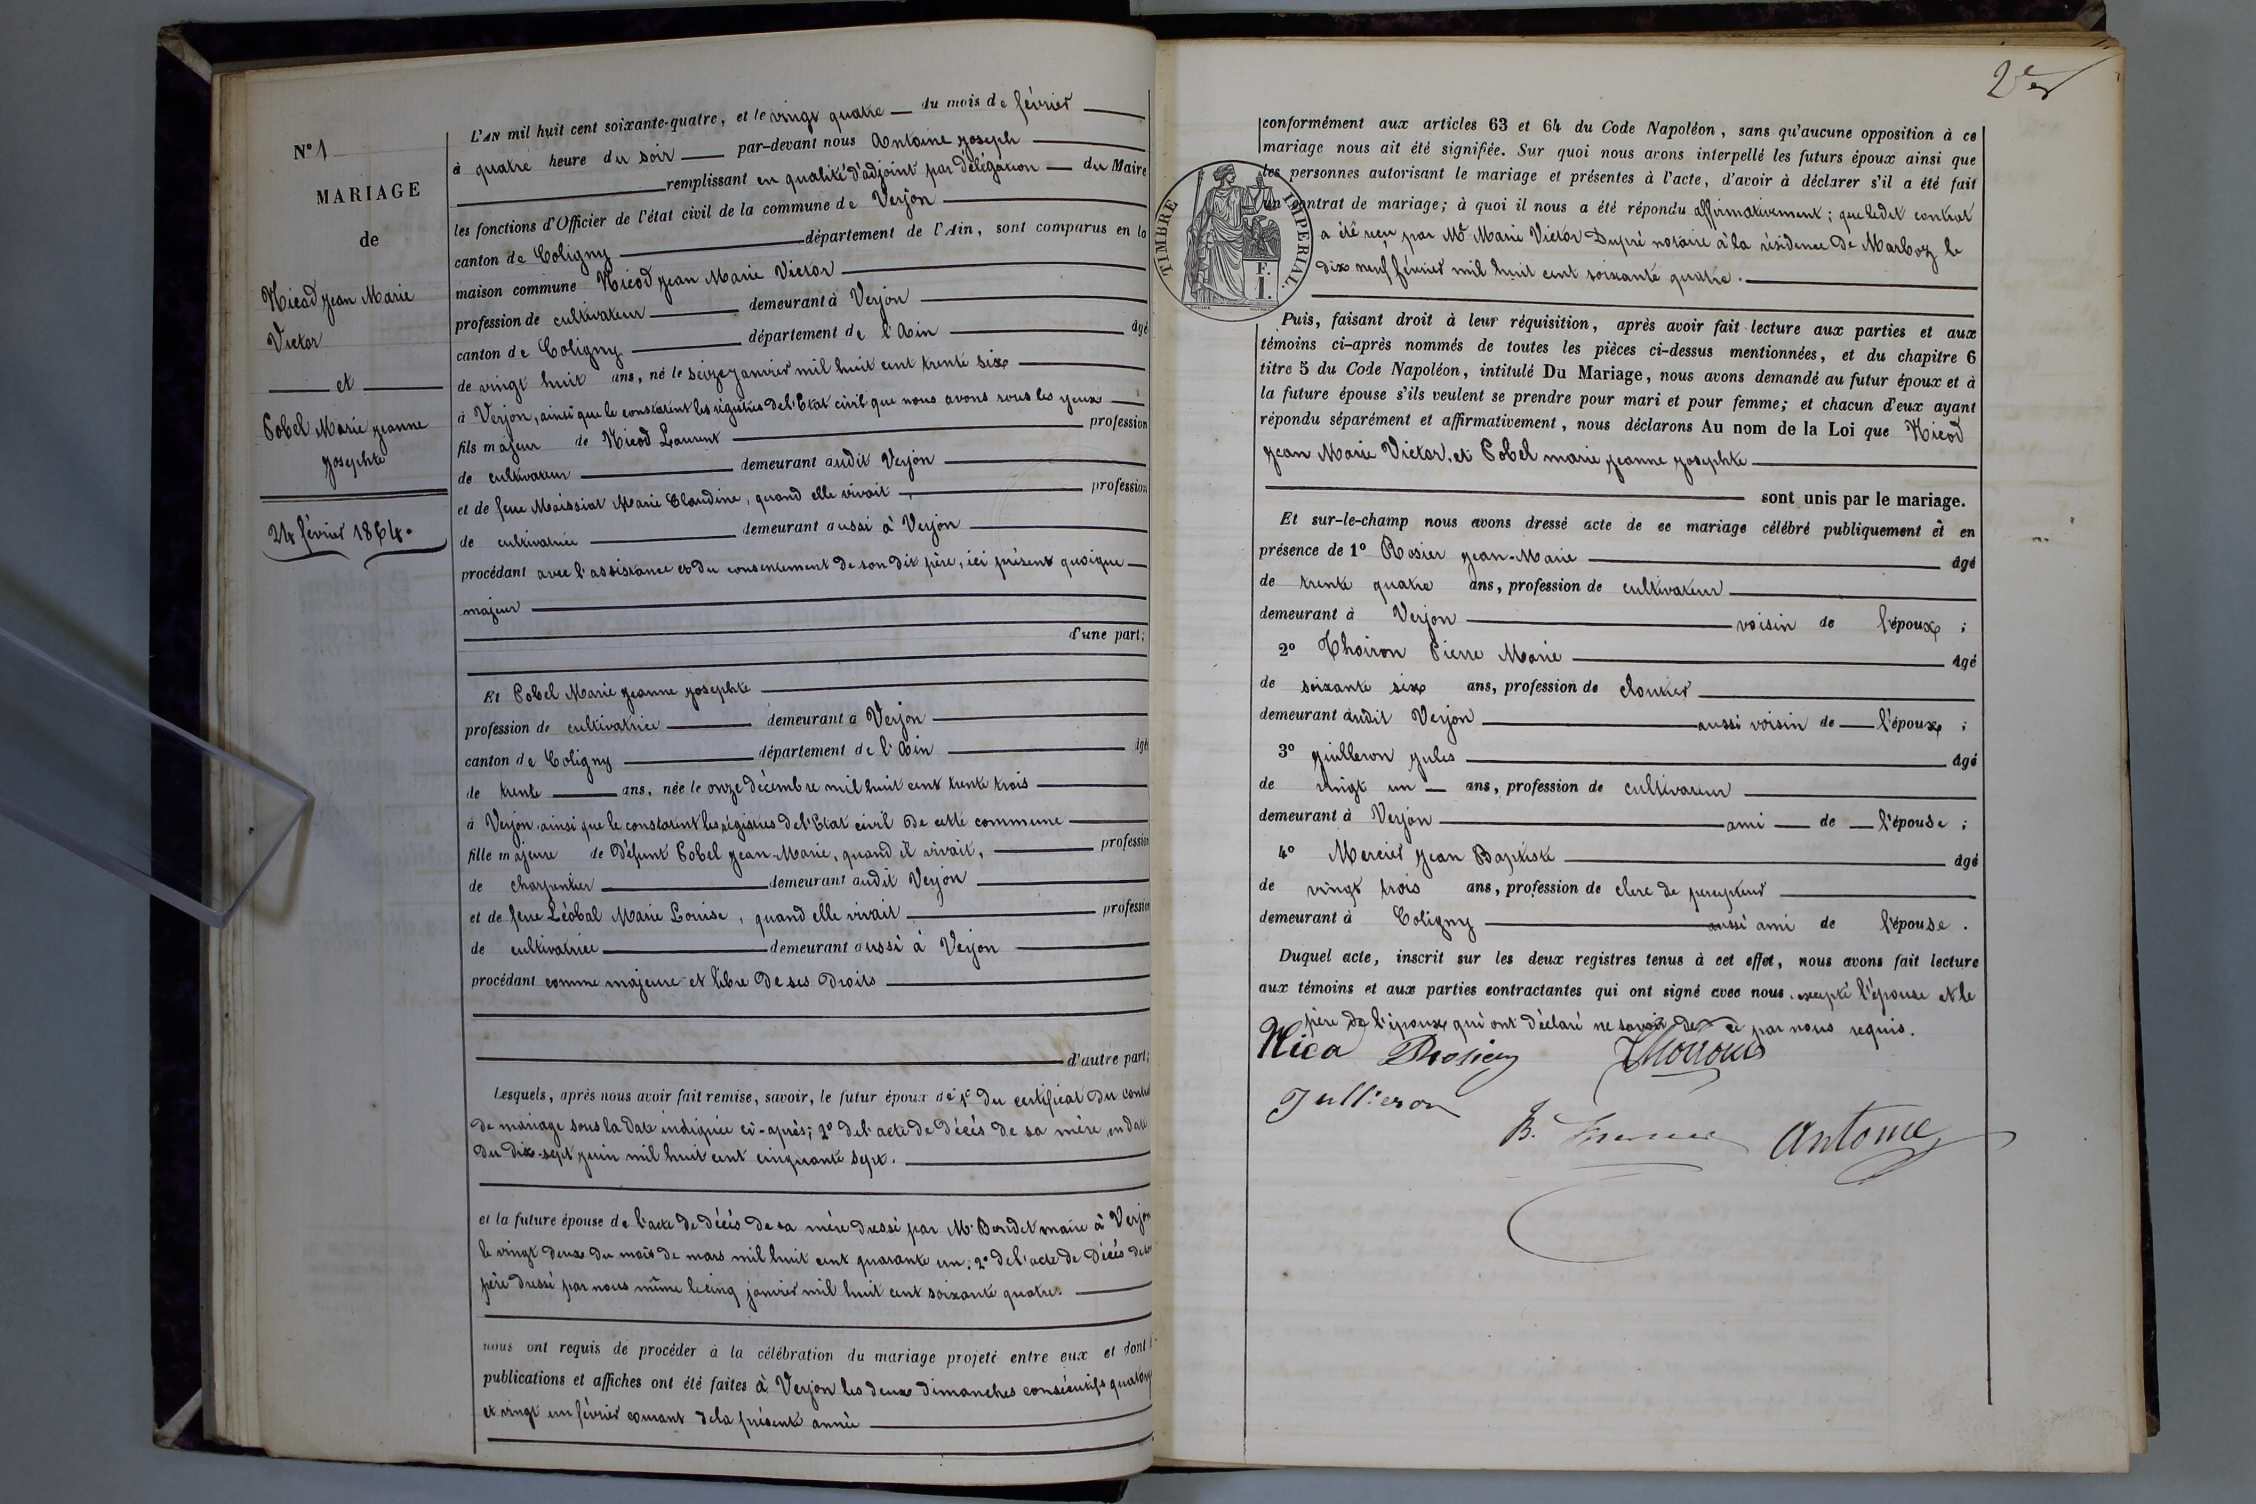 N° 1
MARIAGE
de
Nicod Jean Marie
Victor
et
Pobel Marie Jeanne
Josephte
24 février 1864.
L'AN mil huit cent soixante-quatre, et le vingt quatre du mois de février
à quatre heure du soir par-devant nous Antoine Joseph
remplissant en qualité d'adjoint par délégation du Maire
les fonctions d'Officier de l'état civil de la commune de Verjon
canton de Coligny département de l'Ain, sont comparus en la
maison commune Nicod Jean Marie Victor
profession de cultivateur demeurant à Verjon
canton de Coligny département de l'Ain âgé
de vingt huit ans, né le seize janvier mil huit cent trente six
à Verjon, ainsi que le constatent les régistres de l'Etat civil que nous avons sous les yeux
fils majeur de Nicod Laurent profession
de cultivateur demeurant audit Verjon
et de feue Moissiat Marie Claudine, quand elle vivait, profession
de cultivatrice demeurant aussi à Verjon
procédant avec l'assistance et du consentement de son dit père, ici présent quoique
majeur
d'une part;
Et Pobel Marie Jeanne Josephte
profession de cultivatrice demeurant à Verjon
canton de Coligny département de l'Ain âgé
de trente ans, née le onze décembre mil huit cent trente trois
à Verjon ainsi que le constatent les régistres de l'Etat civil de cette commune
fille majeure de défunt Pobel Jean-Marie, quand il vivait, profession
de charpentier demeurant audit Verjon
et de feue Léobal Marie Louise, quand elle vivait profession
de cultivatrice demeurant aussi à Verjon
procédant comme majeure et libre de ses droits
d'autre part;
Lesquels, après nous avoir fait remise, savoir, le futur époux de 1° du certificat du contrat
de mariage sous la date indiquée ci-après; 2° de l'acte de décés de sa mère, en date
du dix-sept juin mil huit cent cinquante sept.
et la future épouse de l'acte de décés de sa mère dressé par Mr Bondet maire à Verjon
le vingt deux du mois de mars mil huit cent quarante un; 2° de l'acte de Décés de son
père dressé par nous même le cinq janvier mil huit cent soixante quatre.
nous ont requis de procéder à la célébration du mariage projeté entre eux et dont
publications et affiches ont été faites à Verjon les deux dimanches consécutifs quatorze
et vingt un février courant de la présente année
conformément aux articles 63 et 64 du Code Napoléon, sans qu'aucune opposition à ce
mariage nous ait été signifiée. Sur quoi nous avons interpellé les futurs époux ainsi que
les personnes autorisant le mariage et présentes à l'acte, d'avoir à déclarer s'il a été fait
un contrat de mariage; à quoi il nous a été répondu affirmativement; que ledit contrat
a été reçu par Me Marie Victor Dupré notaire à la résidence de Marboz le
dix neuf février mil huit cent soixante quatre.
TIMBRE IMPERIAL.
F.
1.
Puis, faisant droit à leur réquisition, après avoir fait lecture aux parties et aux
témoins ci-après nommés de toutes les pièces ci-dessus mentionnées, et du chapitre 6
titre 5 du Code Napoléon, intitulé Du Mariage, nous avons demandé au futur époux et à
la future épouse s'ils veulent se prendre pour mari et pour femme; et chacun d'eux ayant
répondu séparément et affirmativement, nous déclarons Au nom de la Loi que Nicod
Jean Marie Victor, et Pobel marie Jeanne Josephte
sont unis par le mariage.
Et sur-le-champ nous avons dressé acte de ce mariage célébré publiquement et en
présence de 1° Rosier Jean-Marie âgé
de trente quatre ans, profession de cultivateur
demeurant à Verjon voisin de l'époux ;
2° Thoiron Pierre Marie âgé
de soixante six ans, profession de cloutier
demeurant audit Verjon aussi voisin de l'époux ;
3° Juilleron Jules âgé
de vingt un ans, profession de cultivateur
demeurant à Verjon ami de l'épouse ;
4° Mercier Jean Baptiste âgé
de vingt trois ans, profession de clerc de percepteur
demeurant à Coligny aussi ami de l'épouse.
Duquel acte, inscrit sur les deux registres tenus à cet effet, nous avons fait lecture
aux témoins et aux parties contractantes qui ont signé avec nous, excepté l'épouse et le
père de l'époux qui ont déclaré ne savoir de ce par nous requis.
Nico Rosier
Jullieron
Antoine